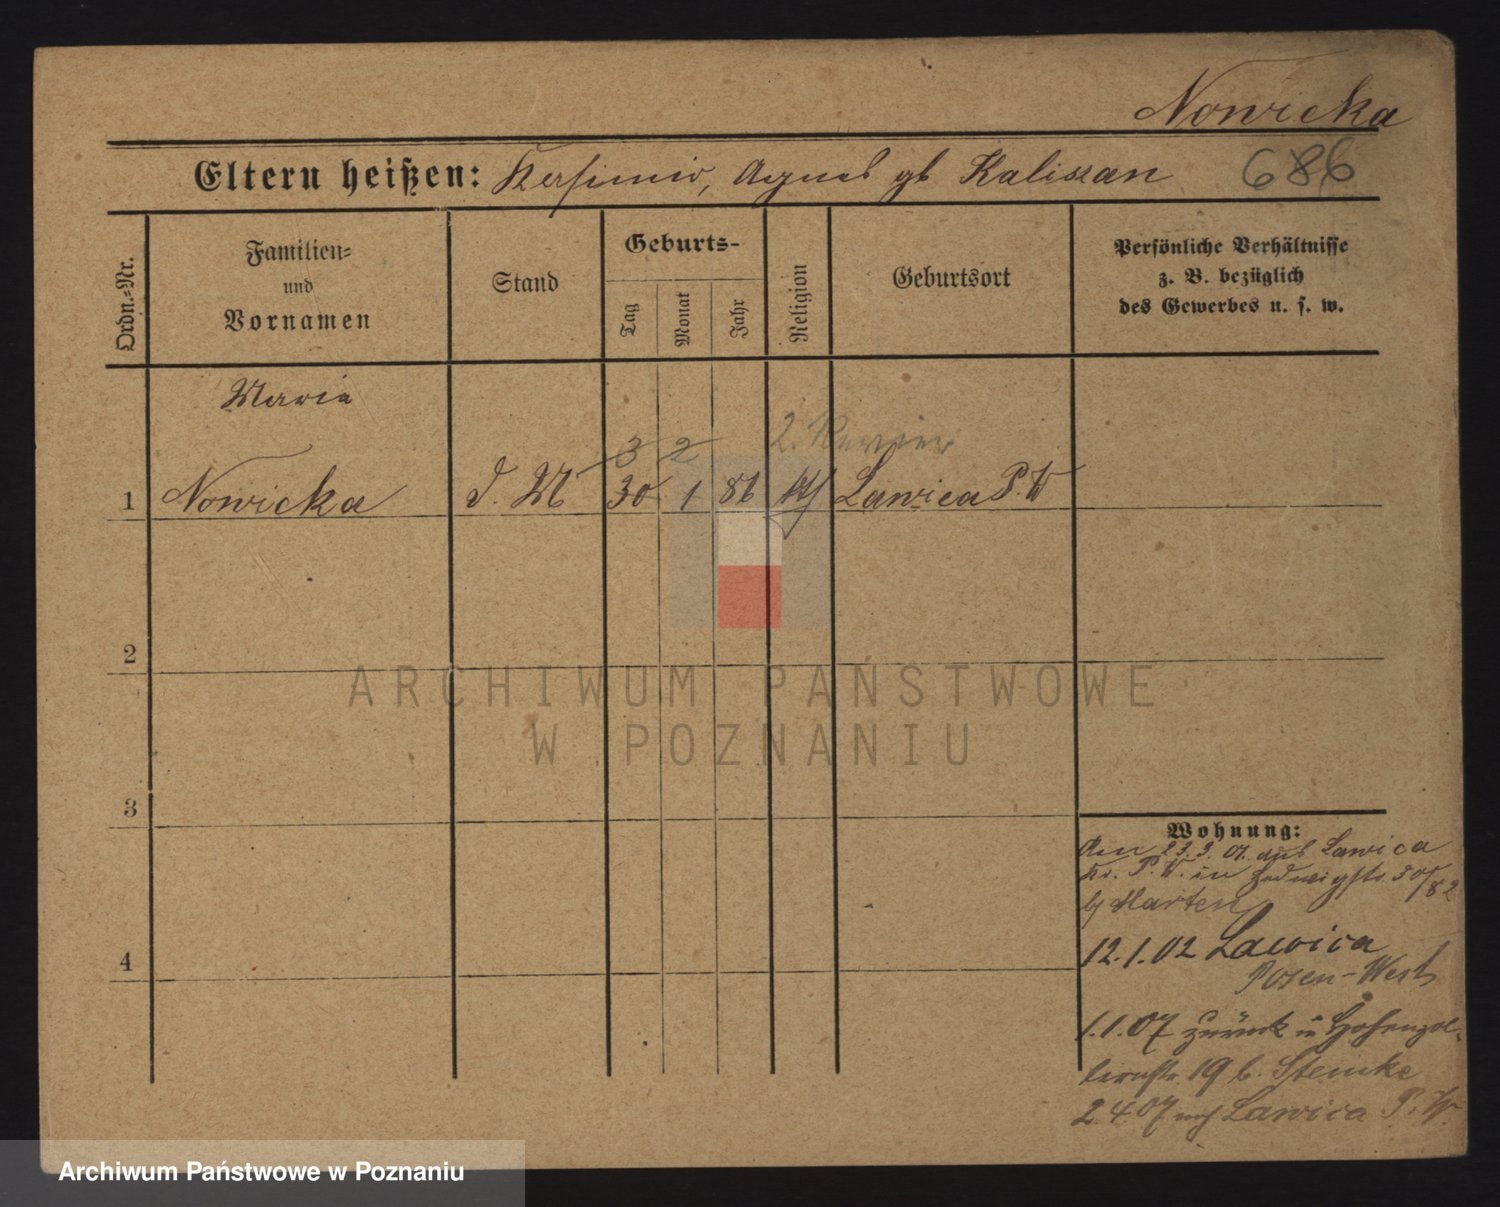 Nowicka
Eltern heißen: Kasimir, Agnes gb Kaliszan 686
Ordn.-Nr.
Familien-
und
Vornamen
Stand
Geburts-
Tag
Monat
Jahr
Religion
Geburtsort
Persönliche Verhältnisse
z. B. bezüglich
des Gewerbes u. s. w.
Maria
3 2 2. Revier
1 Nowicka d. M 30 1 86 Lawica P. W
2
3
4
ARCHIWUM PAŃSTWOWE
W POZNANIU
Wohnung:
Am 23.3.01. aus Lawica
Kr. P. W. in Hedwigstr. 30/82
bj Marten
12.1.02 Lawica
Posen-West
1.1.07 zurück in Hohenzol-
lernstr 19 b. Stemke
2.4.07 nach Lawica P. W.
Archiwum Państwowe w Poznaniu